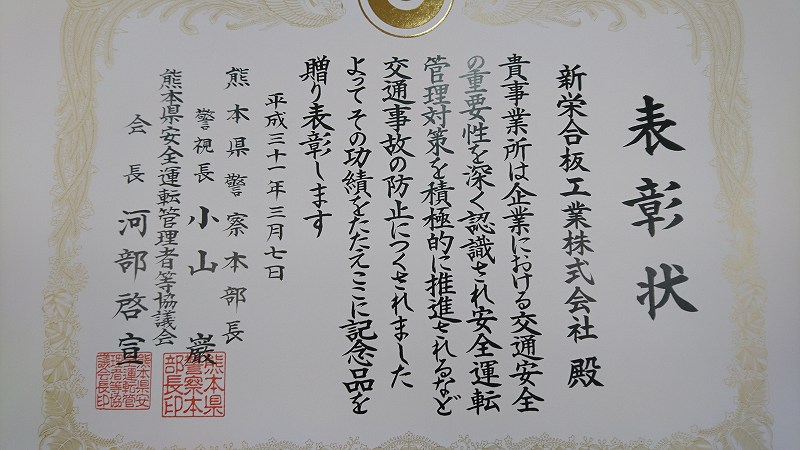 表彰状
新栄合板工業株式会社 殿
貴事業所は企業における交通安全
の重要性を深く認識され安全運転
管理対策を積極的に推進されるなど
交通事故の防止につくされました
よってその功績をたたえここに記念品を
贈り表彰します
平成三十一年三月七日
熊本県警察本部長
警視長 小山 巌
熊本県安全運転管理者等協議会
会長 河部啓宣
熊本県
警察本
部長印
熊本県安
全運転管
理者等協
議会長印